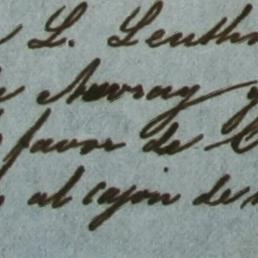 L. Leuth
de Nevray y
favor de C
al cajon de